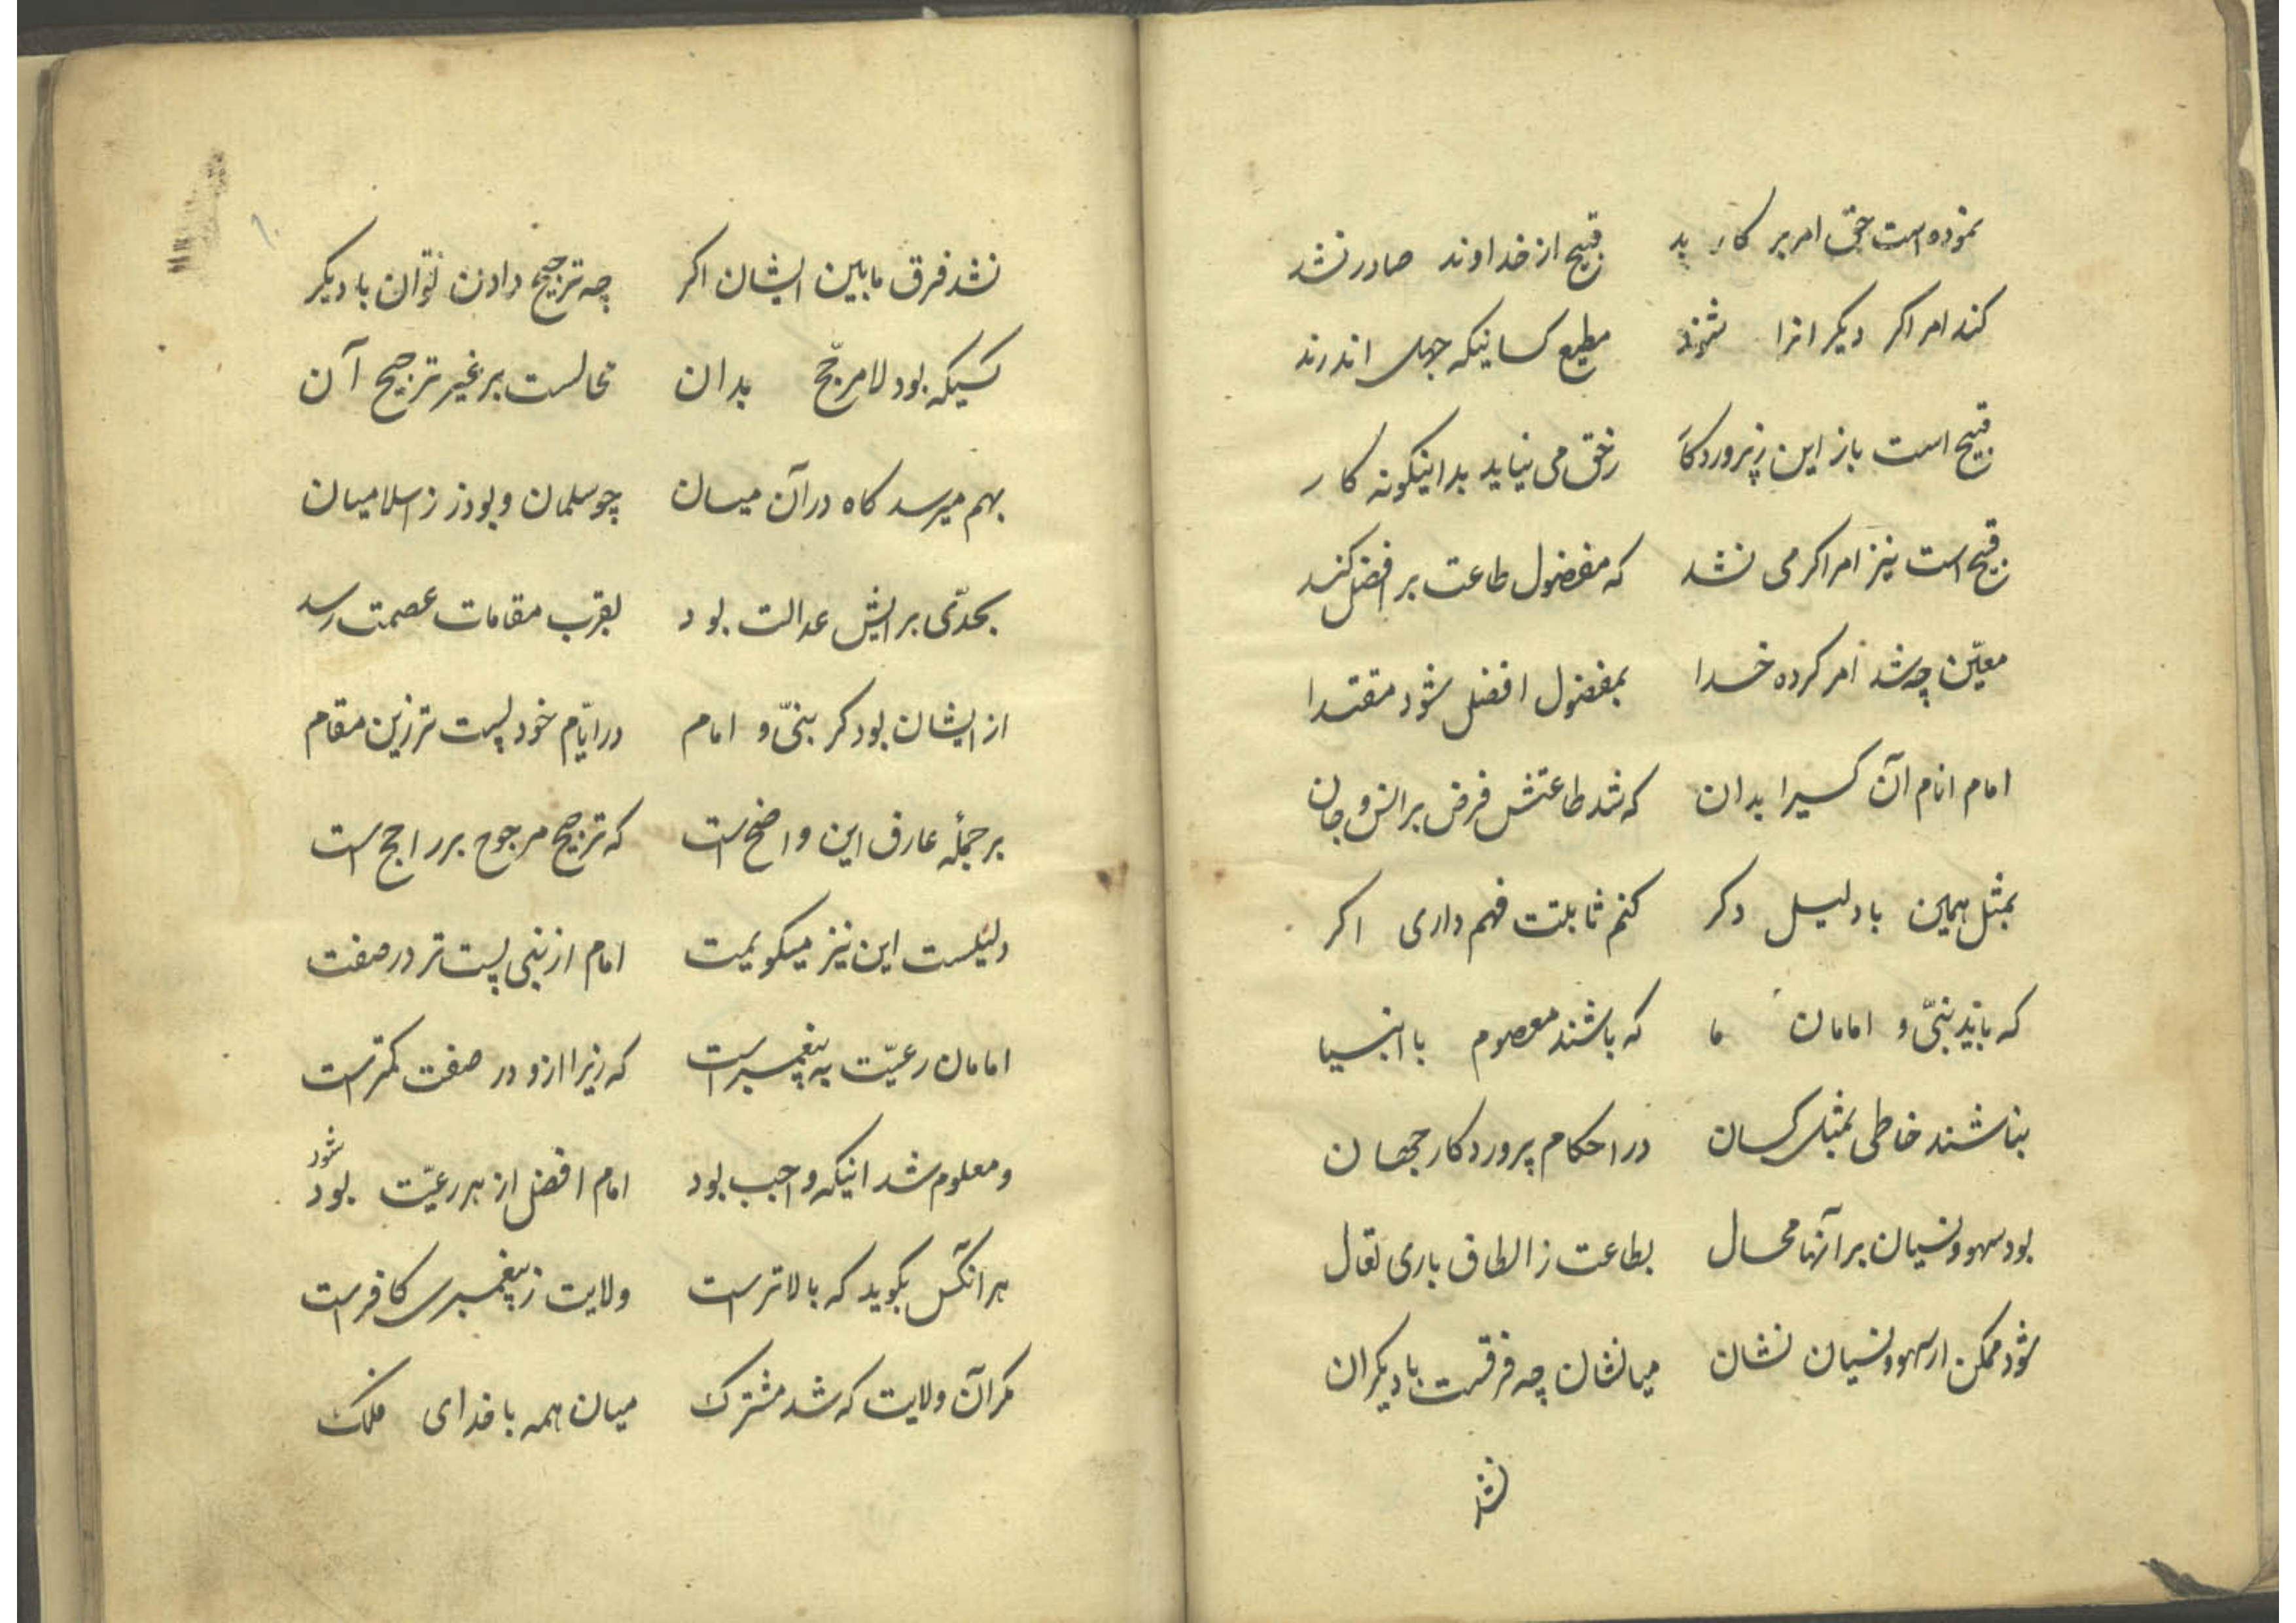 نموده است حق امر بر کار بد قبیح از خداوند صادر نشد
کند امر اگر دیگرانرا شوند مطیع کسانیکه جهل اندرند
قبیح است باز این ز پروردگار ز حق می نیاید بد اینگونه کار
قبیح است نیز امر اگر می نشد که مفضول طاعت بر افضل کند
معیّن چه شد امر کرده خدا بمفضول افضل شود مقتدا
امام انام آن کسیرا بدان که شد طاعتش فرض بر انس و جان
بمثل همین با دلیل دکر کنم ثابتت فهم داری اکر
که باید نبیّ و امامان ما که باشند معصوم با انبیا
نباشند خاطی بمثل کسان در احکام پروردکار جهان
بود سهو و نسیان بر آنها محال بطاعت ز الطاف باری تعال
شود ممکن ار سهو و نسیان نشان میانشان چه فرقست با دیکران
نشد
نشد فرق مابین ایشان اکر چه ترجیح دادن توان با دیکر
کسیکه بود لامرجّح بدان محالست بر غیر ترجیح آن
بهم میرسد کاه در آن میان چو سلمان و بوذر ز اسلامیان
بحدّی برایش عدالت بود بقرب مقامات عصمت رسد
از ایشان بود کر نبیّ و امام در ایّام خود پست تر زین مقام
بر جمله عارف این واضح است که ترجیح مرجوح بر راجح است
دلیلست این نیز میکویمت امام از نبی پست تر در صفت
امامان رعیّت به پیغمبر است که زیرا ازو در صفت کمتر است
و معلوم شد اینکه واجب بود امام افضل از هر رعیّت بود
شود
هر آنکس بکوید که بالاتر است ولایت ز پیغمبری کافر است
مکر آن ولایت که شد مشترک میان همه با خدای فلک